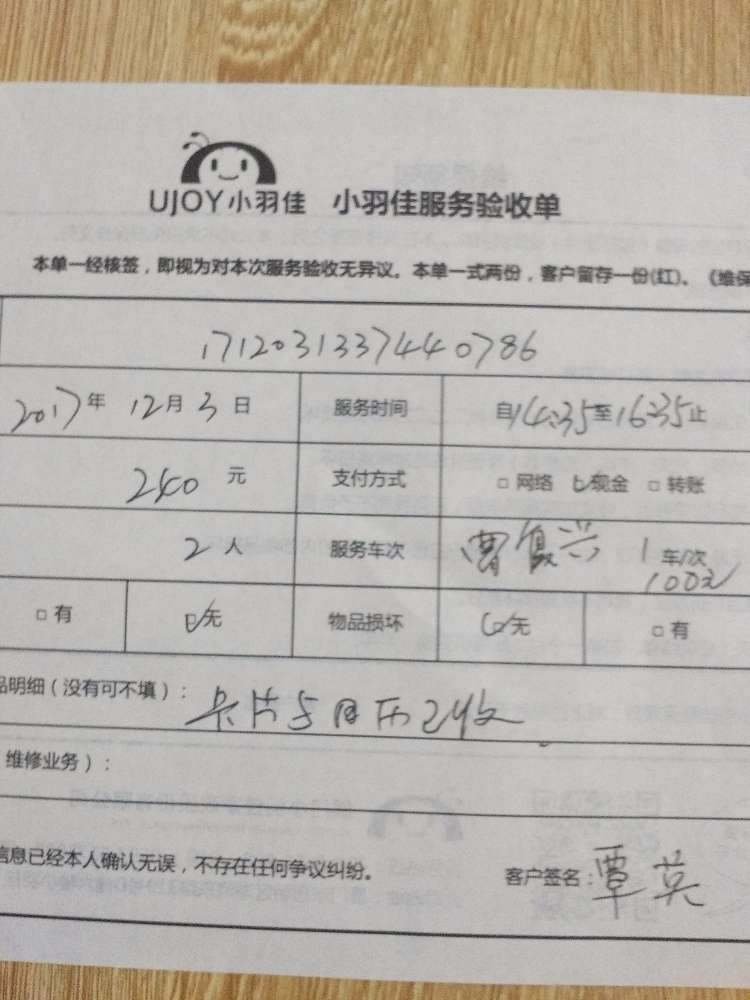 UJOY小羽佳 小羽佳服务验收单
本单一经核签，即视为对本次服务验收无异议。本单一式两份，客户留存一份(红)。《维保
17120313374440786
2017年 12月 3日 服务时间 自14:35至16:35止
240 元 支付方式 □ 网络 ☑现金 □ 转账
2 人 服务车次 曹复兴 1 车/次
100元
□ 有 ☑无 物品损坏 ☑无 □ 有
品明细（没有可不填）： 卡片与日历已收.
维修业务）：
信息已经本人确认无误，不存在任何争议纠纷。 客户签名：覃英